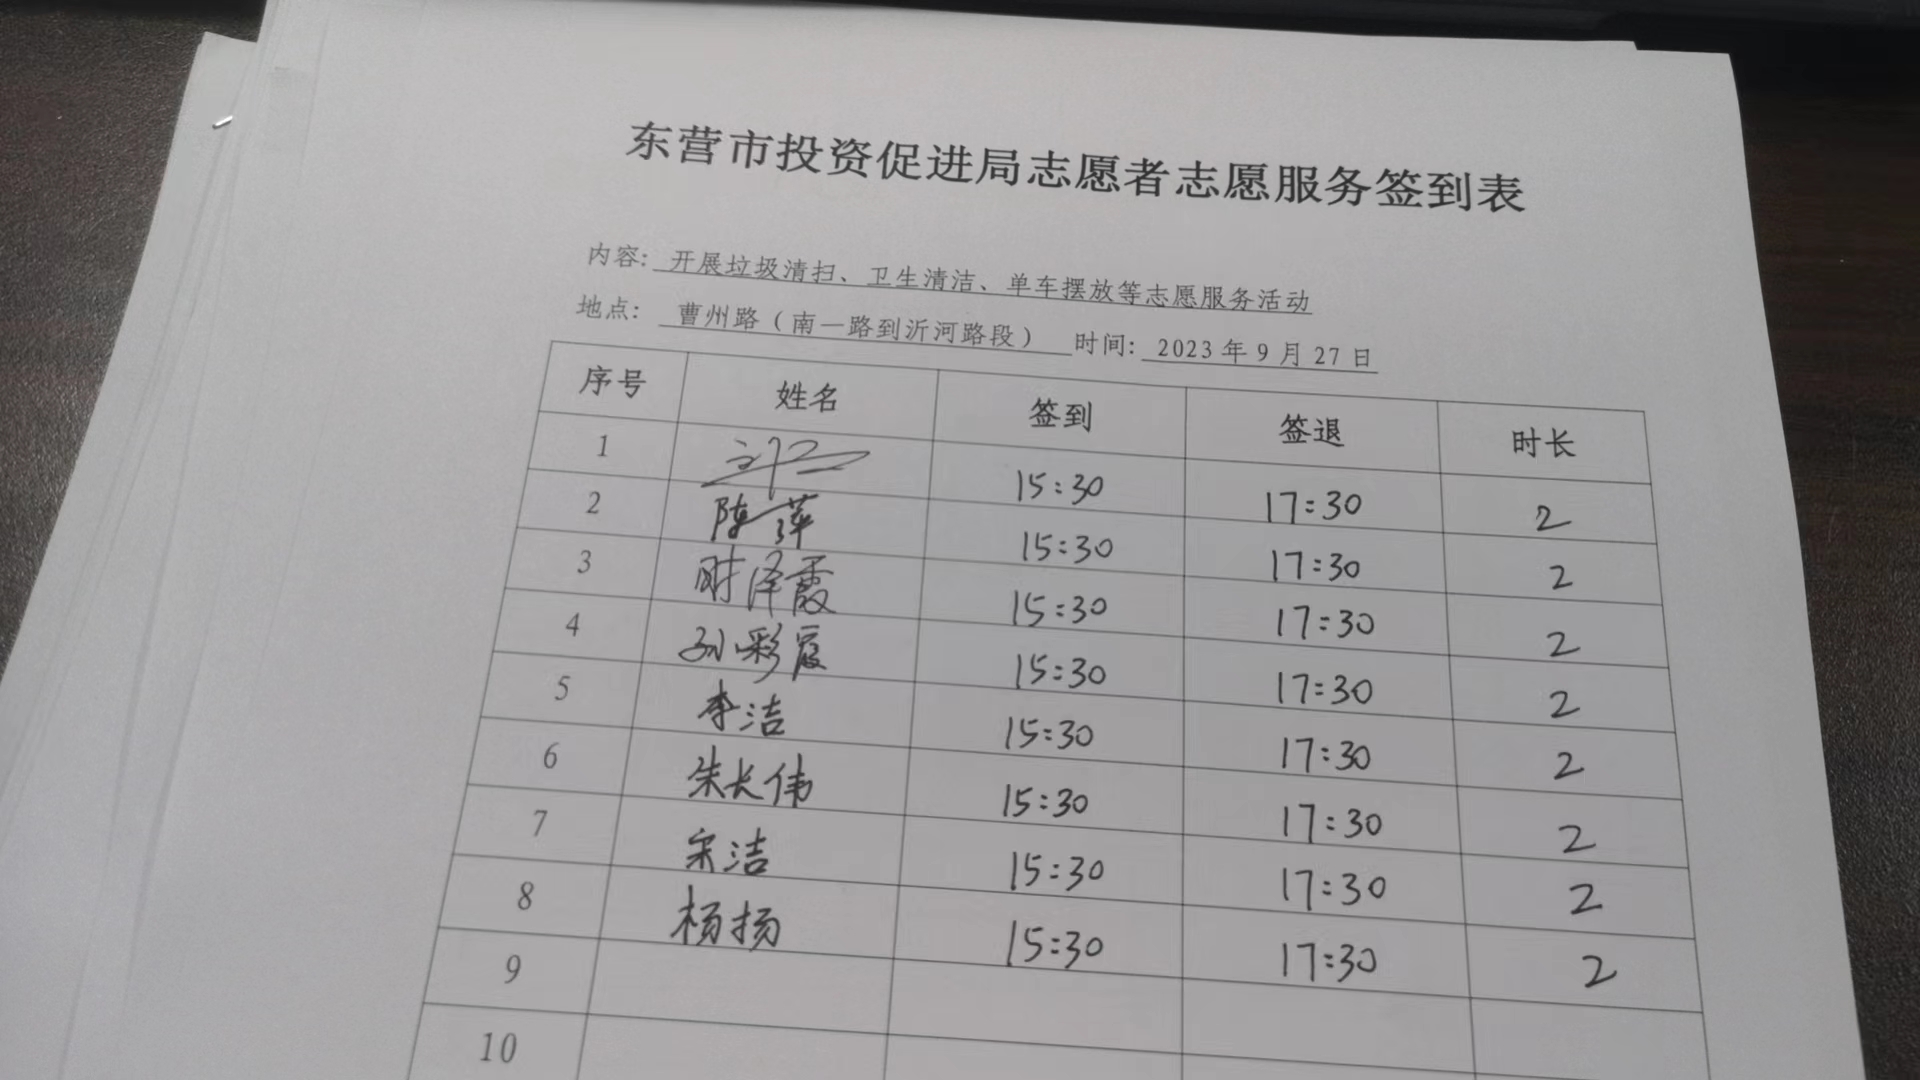 东营市投资促进局志愿者志愿服务签到表
内容: 开展垃圾清扫、卫生清洁、单车摆放等志愿服务活动
地点: 曹州路（南一路到沂河路段） 时间: 2023年9月27日
序号 姓名 签到 签退 时长
1 15:30 17:30 2
2 陈萍 15:30 17:30 2
3 时泽霞 15:30 17:30 2
4 孙彩霞 15:30 17:30 2
5 李洁 15:30 17:30 2
6 朱长伟 15:30 17:30 2
7 宋洁 15:30 17:30 2
8 杨扬 15:30 17:30 2
9
10